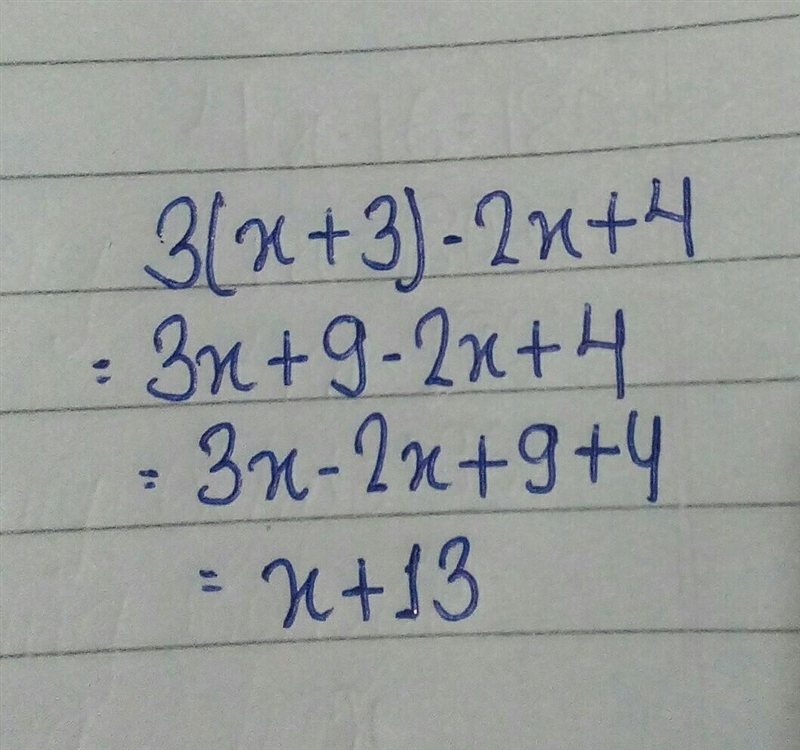 3(x+3)-2x+4
= 3x+9-2x+4
= 3x-2x+9+4
= x+13